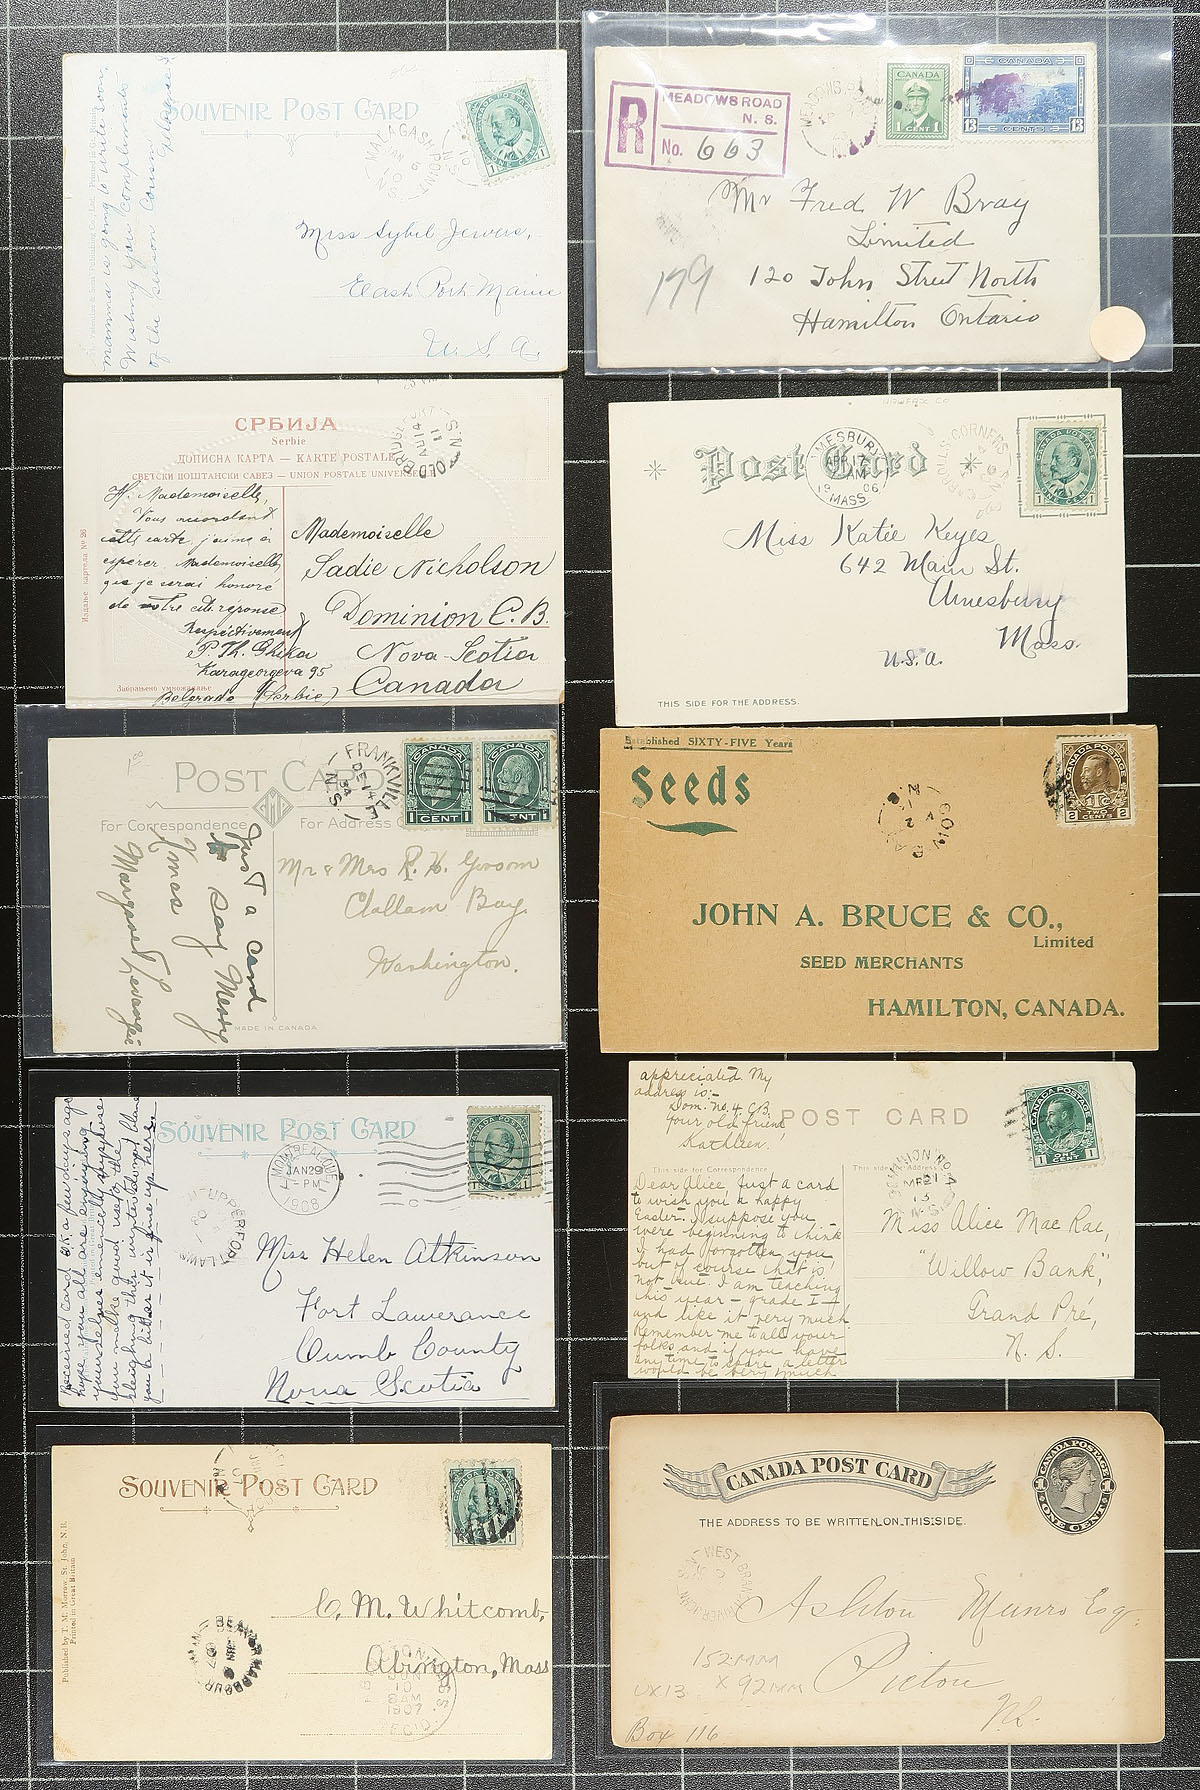 SOUVENIR POST CARD
mamma is going to write soon.
Wishing you Compliments
of the Season Cousin
MALAGASH POINT
N.S.
Miss Sybil Jewers,
East Port Maine
U.S.A.
R
MEADOWS ROAD
N. S.
No. 663
CANADA
1 CENT 1
CANADA
13 CENTS 13
Mr Fred W Bray
Limited
120 John Street North
Hamilton Ontario
179
СРБИЈА
Serbie
ДОПИСНА КАРТА — KARTE POSTALE
СВЕТСКИ ПОШТАНСКИ САВЕЗ — UNION POSTALE UNIVERSE
OLD BRIDGEPORT
N.S.
AU 14
11
Mademoiselle,
Vous accordant
cette carte j'aime à
espérer, Mademoiselle,
que je serai honoré
de votre réponse
Respectivement
P. Th. Ghika
Karageorgeva 95
Belgrade (Serbie)
Mademoiselle
Sadie Nicholson
Dominion C.B.
Nova-Scotia
Canada
Издање картела № 26
Забрањено умножавање
Post Card
AMESBURY
MASS.
AM
1906
CANADA POSTAGE
Miss Katie Keyes
642 Main St.
Amesbury
Mass.
U.S.A.
THIS SIDE FOR THE ADDRESS.
POST CARD
FRANKVILLE
DE 14
34
N.S.
CANADA
1 CENT
CANADA
1 CENT
For Correspondence
For Address
Just a card
to say Merry
Xmas
Margaret
Mr & Mrs R. H. Groom
Clallam Bay
Washington.
MADE IN CANADA
Established SIXTY-FIVE Years
Seeds
CANADA POSTAGE
2 CENTS 2
JOHN A. BRUCE & CO.,
Limited
SEED MERCHANTS
HAMILTON, CANADA.
SOUVENIR POST CARD
MONTREAL, QUE.
JAN 29
PM
1908
UPPER FORT LAWRENCE
Received card O.K. a few days ago
hope you all are enjoying
yourselves
you make good use of the
sleighing
you a bit as it is fine up here.
Miss Helen Atkinson
Fort Lawerance
Cumb County
Nova Scotia
appreciated My
address is:-
Dom. No. 4 C.B.
Your old friend
Kathleen.
POST CARD
CANADA POSTAGE
1 ONE CENT 1
This side for Correspondence
DOMINION No. 4
MR 21
13
N.S.
Dear Alice Just a card
to wish you a happy
Easter. I suppose you
were beginning to think
I had forgotten you
but of course that is
not true. I am teaching
this year — grade I —
and like it very much
Remember me to all your
folks and if you have
any time to spare a letter
would be very much
Miss Alice Mac Rae,
"Willow Bank",
Grand Pré,
N. S.
SOUVENIR POST CARD
Published by T. M. Morrow, St. John, N. B.
Printed in Great Britain
BEAVER HARBOUR
07
C. M. Whitcomb,
Abington, Mass
10
8AM
1907
REC'D.
CANADA POST CARD
THE ADDRESS TO BE WRITTEN ON THIS SIDE.
CANADA POSTAGE
ONE CENT
WEST BRANCH RIVER JOHN
Ashton Munro Esq.
Picton
N.S.
152mm
x 92mm
UX13
Box 116